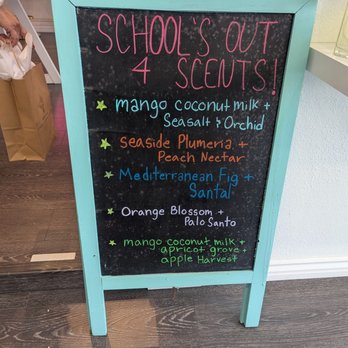 SCHOOL'S OUT
4 SCENTS!
mango coconut milk +
Seasalt & Orchid
seaside Plumeria +
Peach Nectar
Mediterranean Fig +
Santal
Orange Blossom +
Palo Santo
mango coconut milk +
apricot grove +
apple Harvest